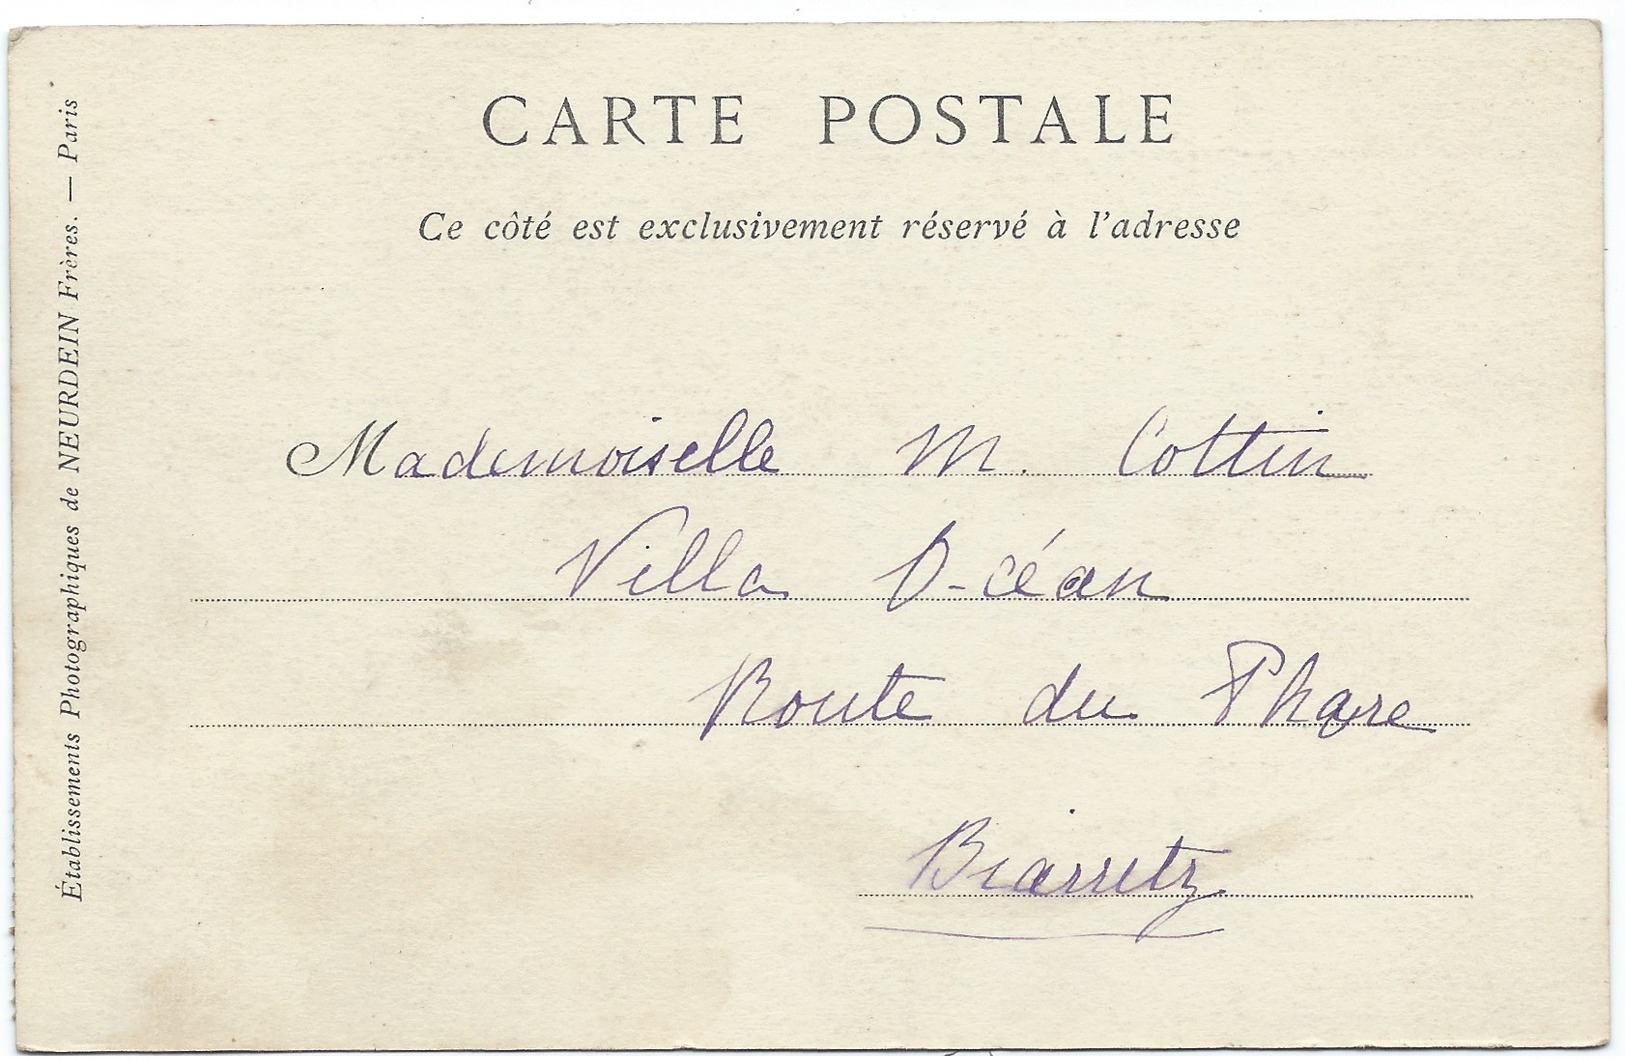 CARTE POSTALE
Ce côté est exclusivement réservé à l'adresse
Mademoiselle M. Cottin
Villa O-céan
Route du Phare
Biarritz
Établissements Photographiques de NEURDEIN Frères. — Paris